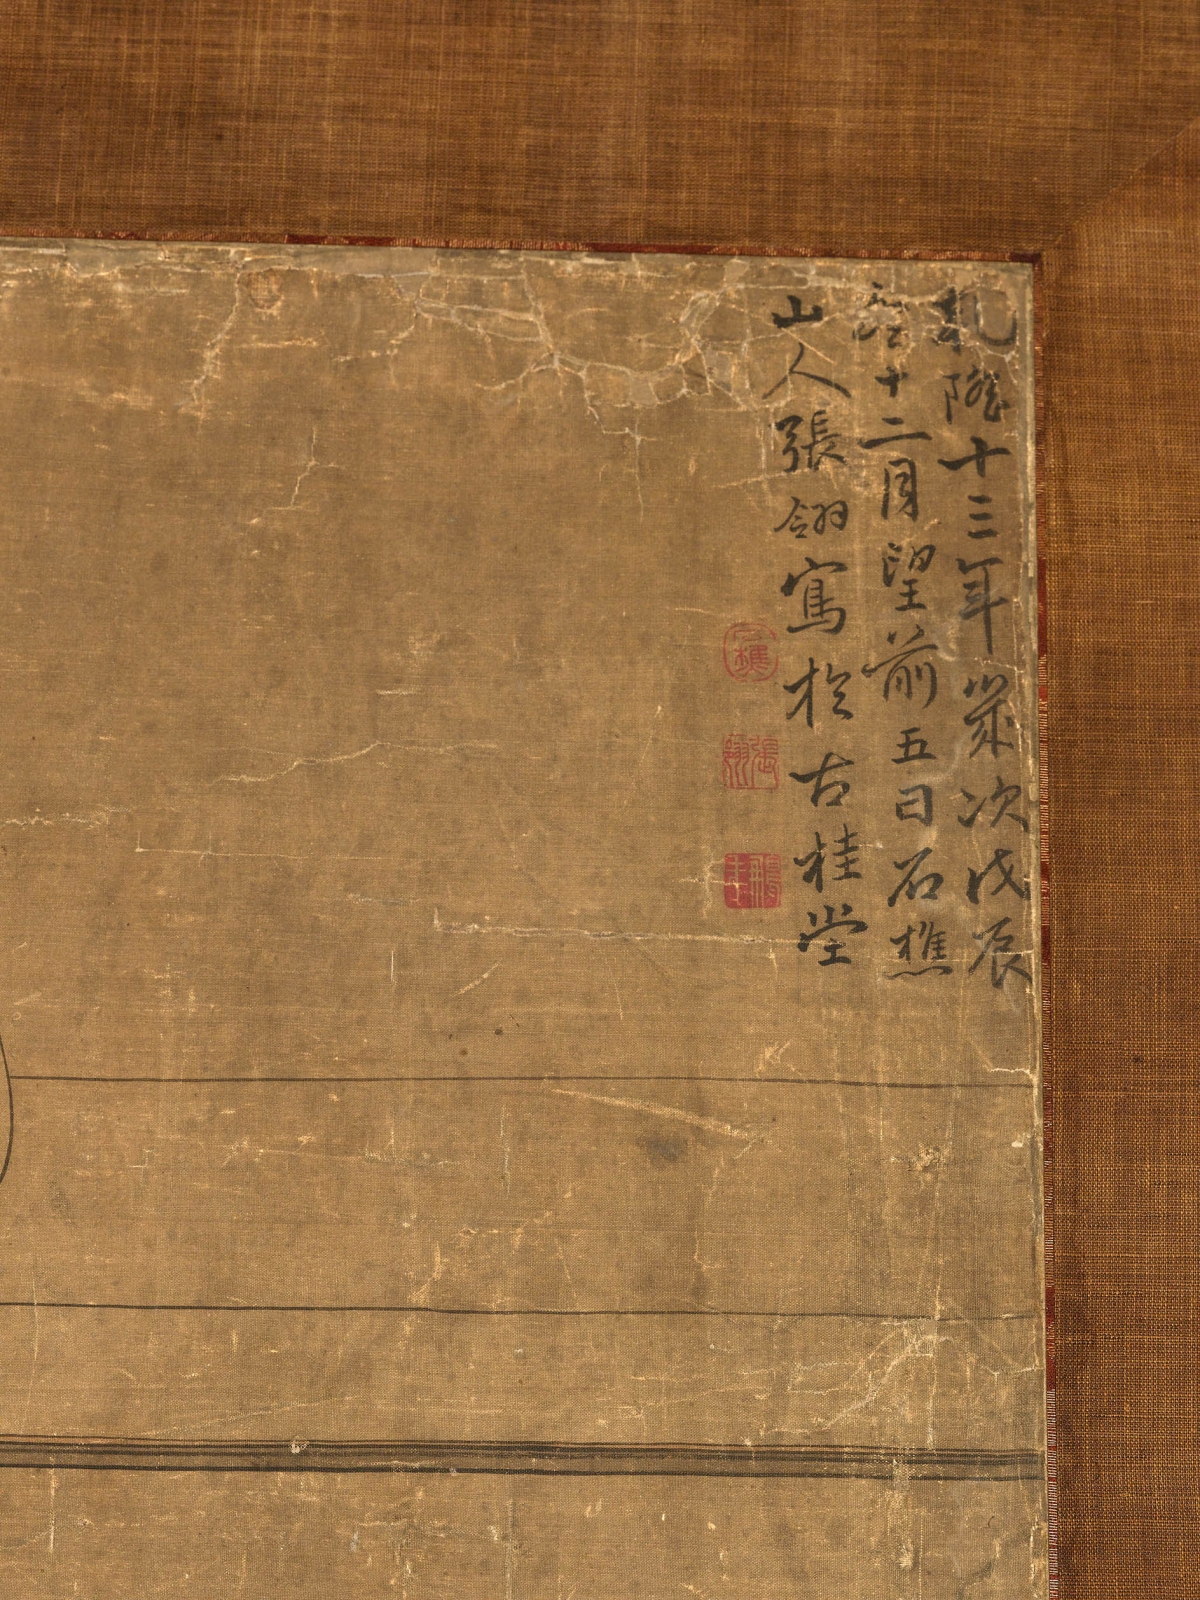 乾隆十三年歲次戊辰
十二月望前五日石樵
山人張翎寫於古桂堂
石樵
張翎
鵬